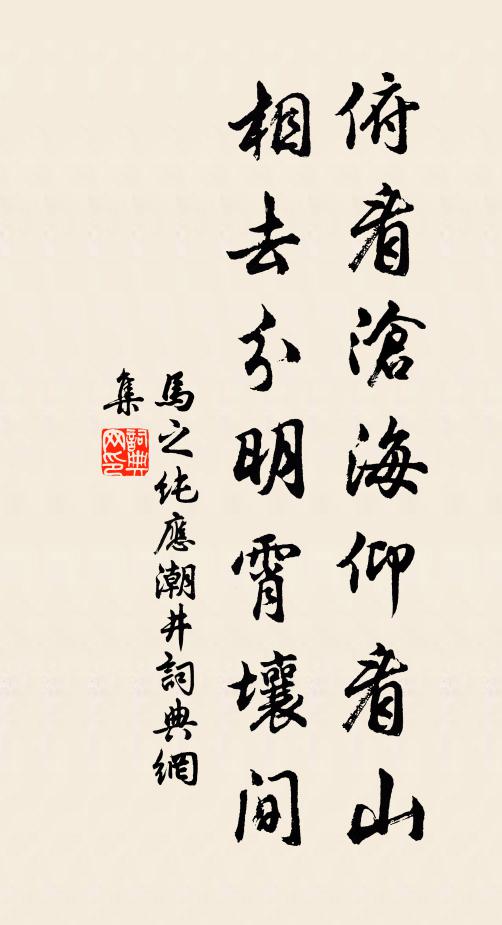 俯看滄海仰看山
相去分明霄壤間
馬之纯應潮井詞典網
集
詞典
网印